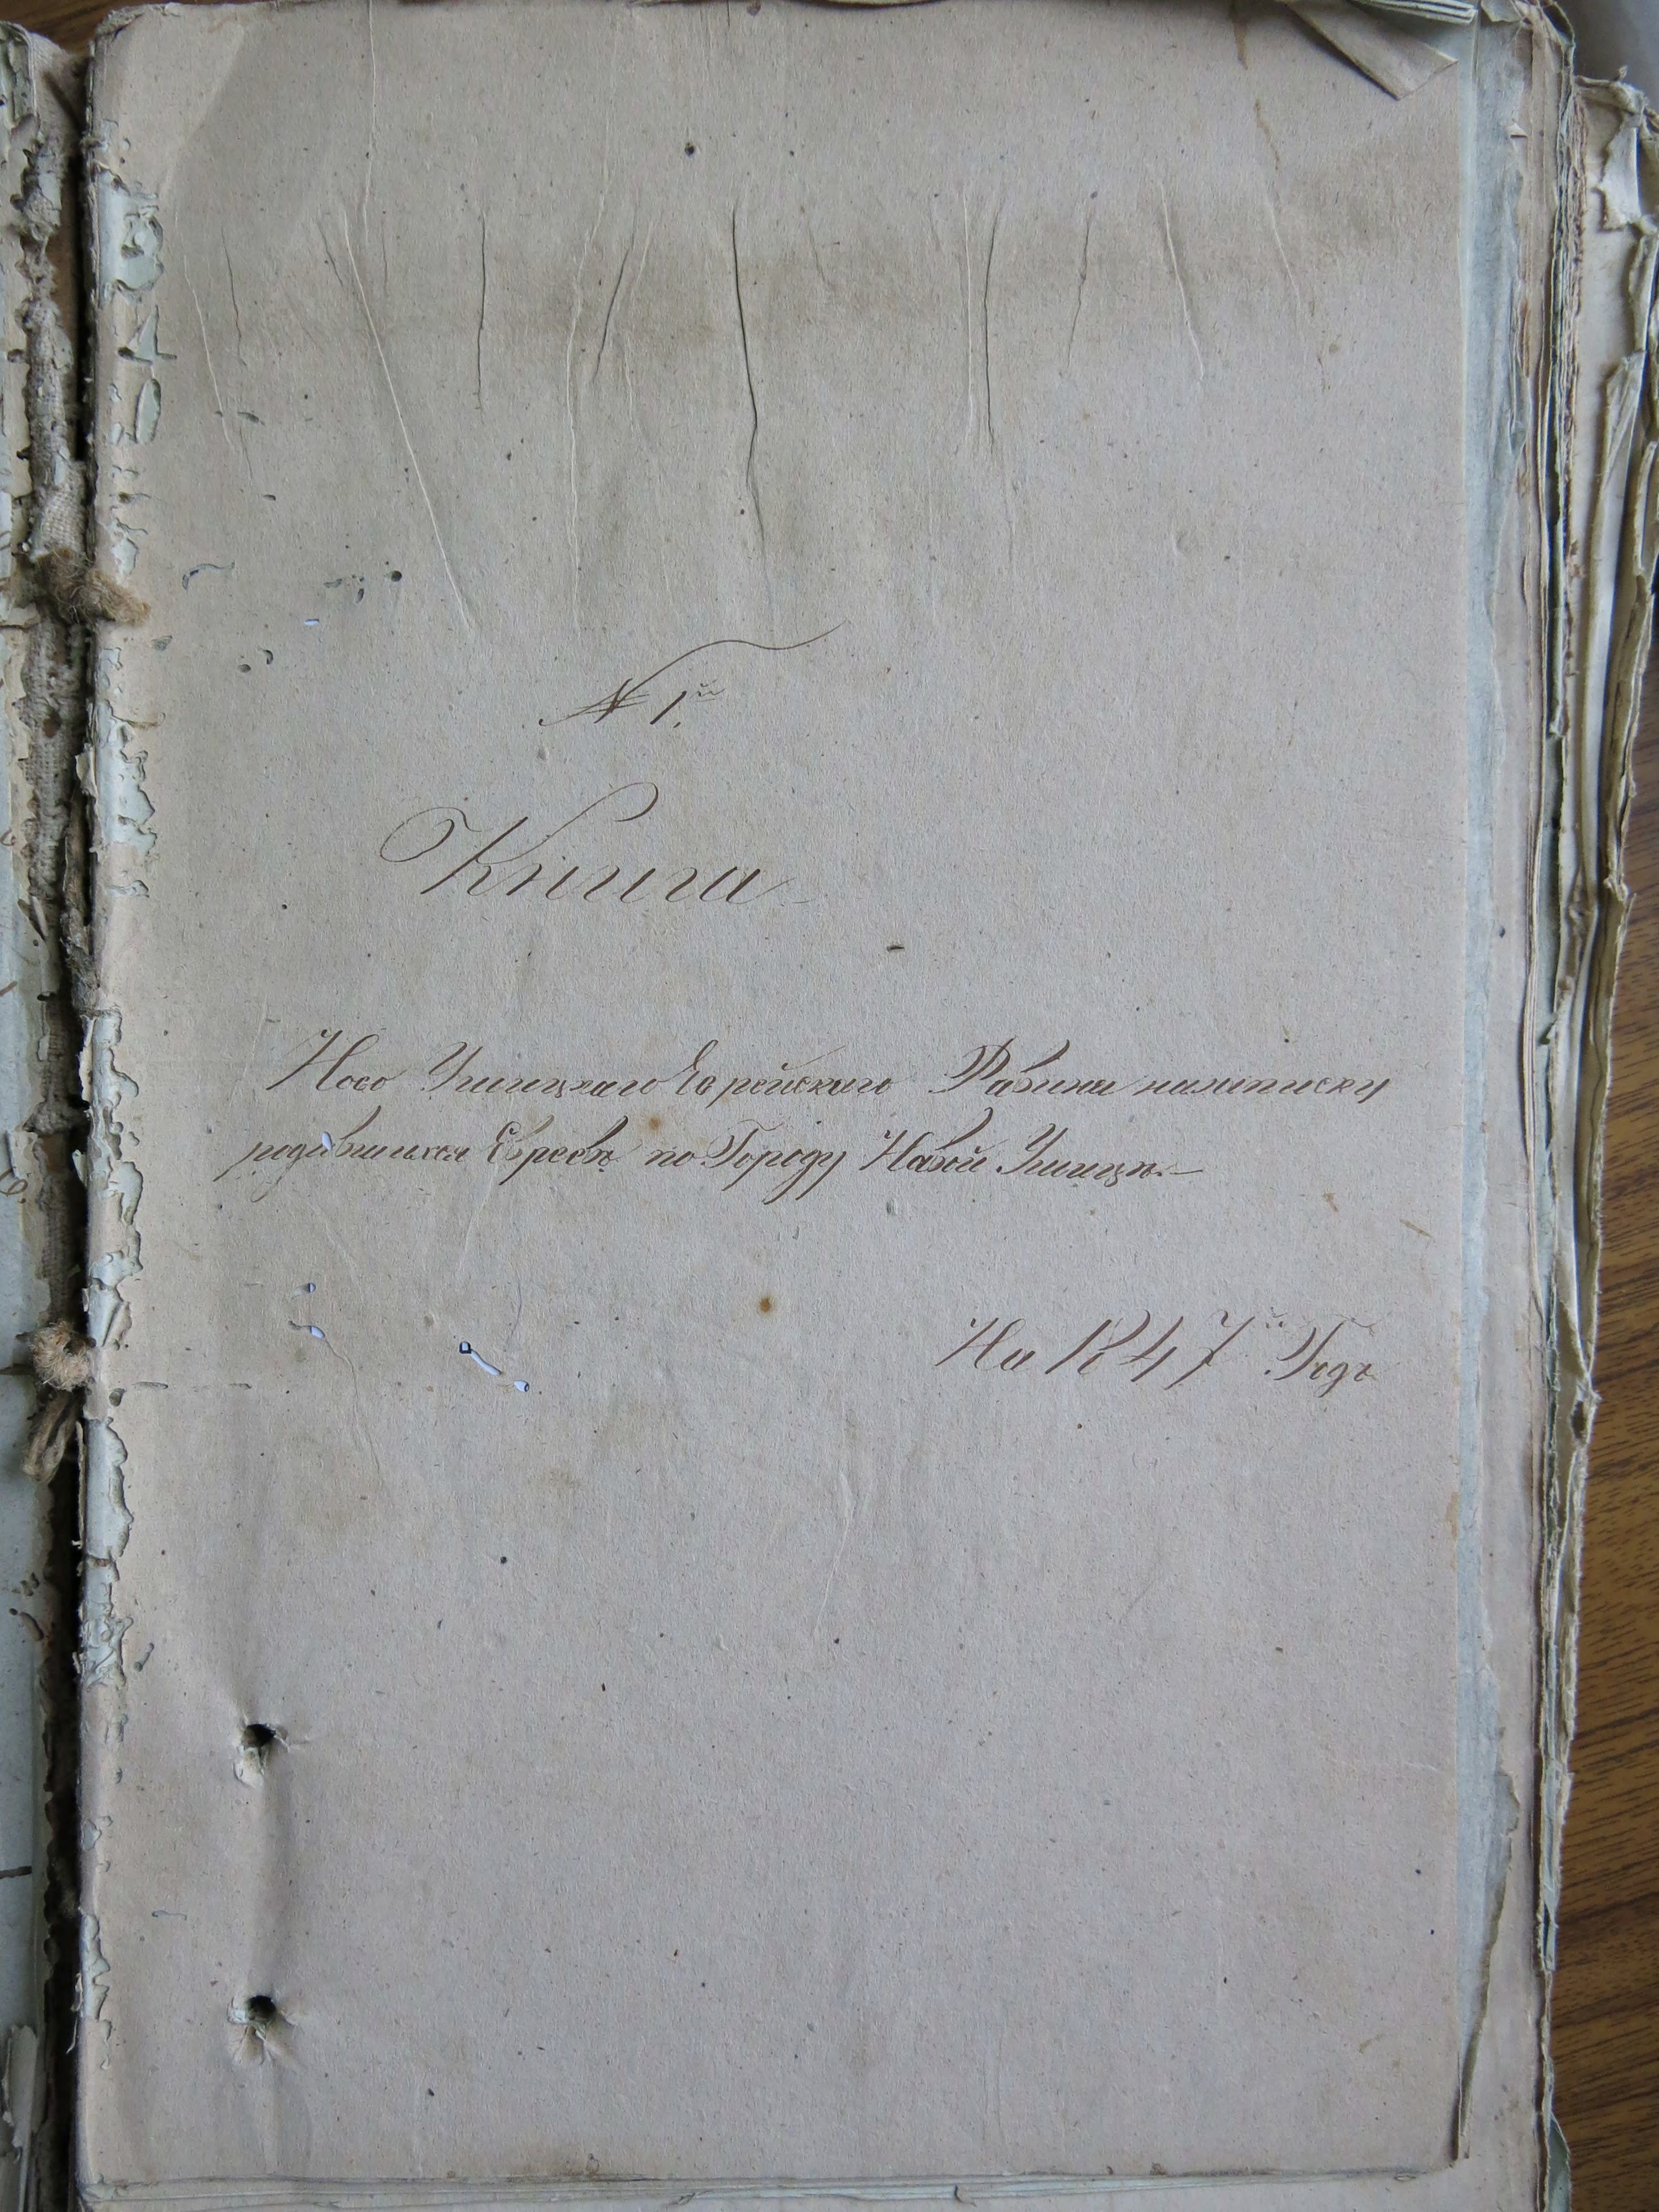 № 1.й
Книга
Ново Ушицкаго Еврейскаго Рабина на записку
родившихся Евреевъ по Городу Новой Ушицѣ.
На 1847й Годъ